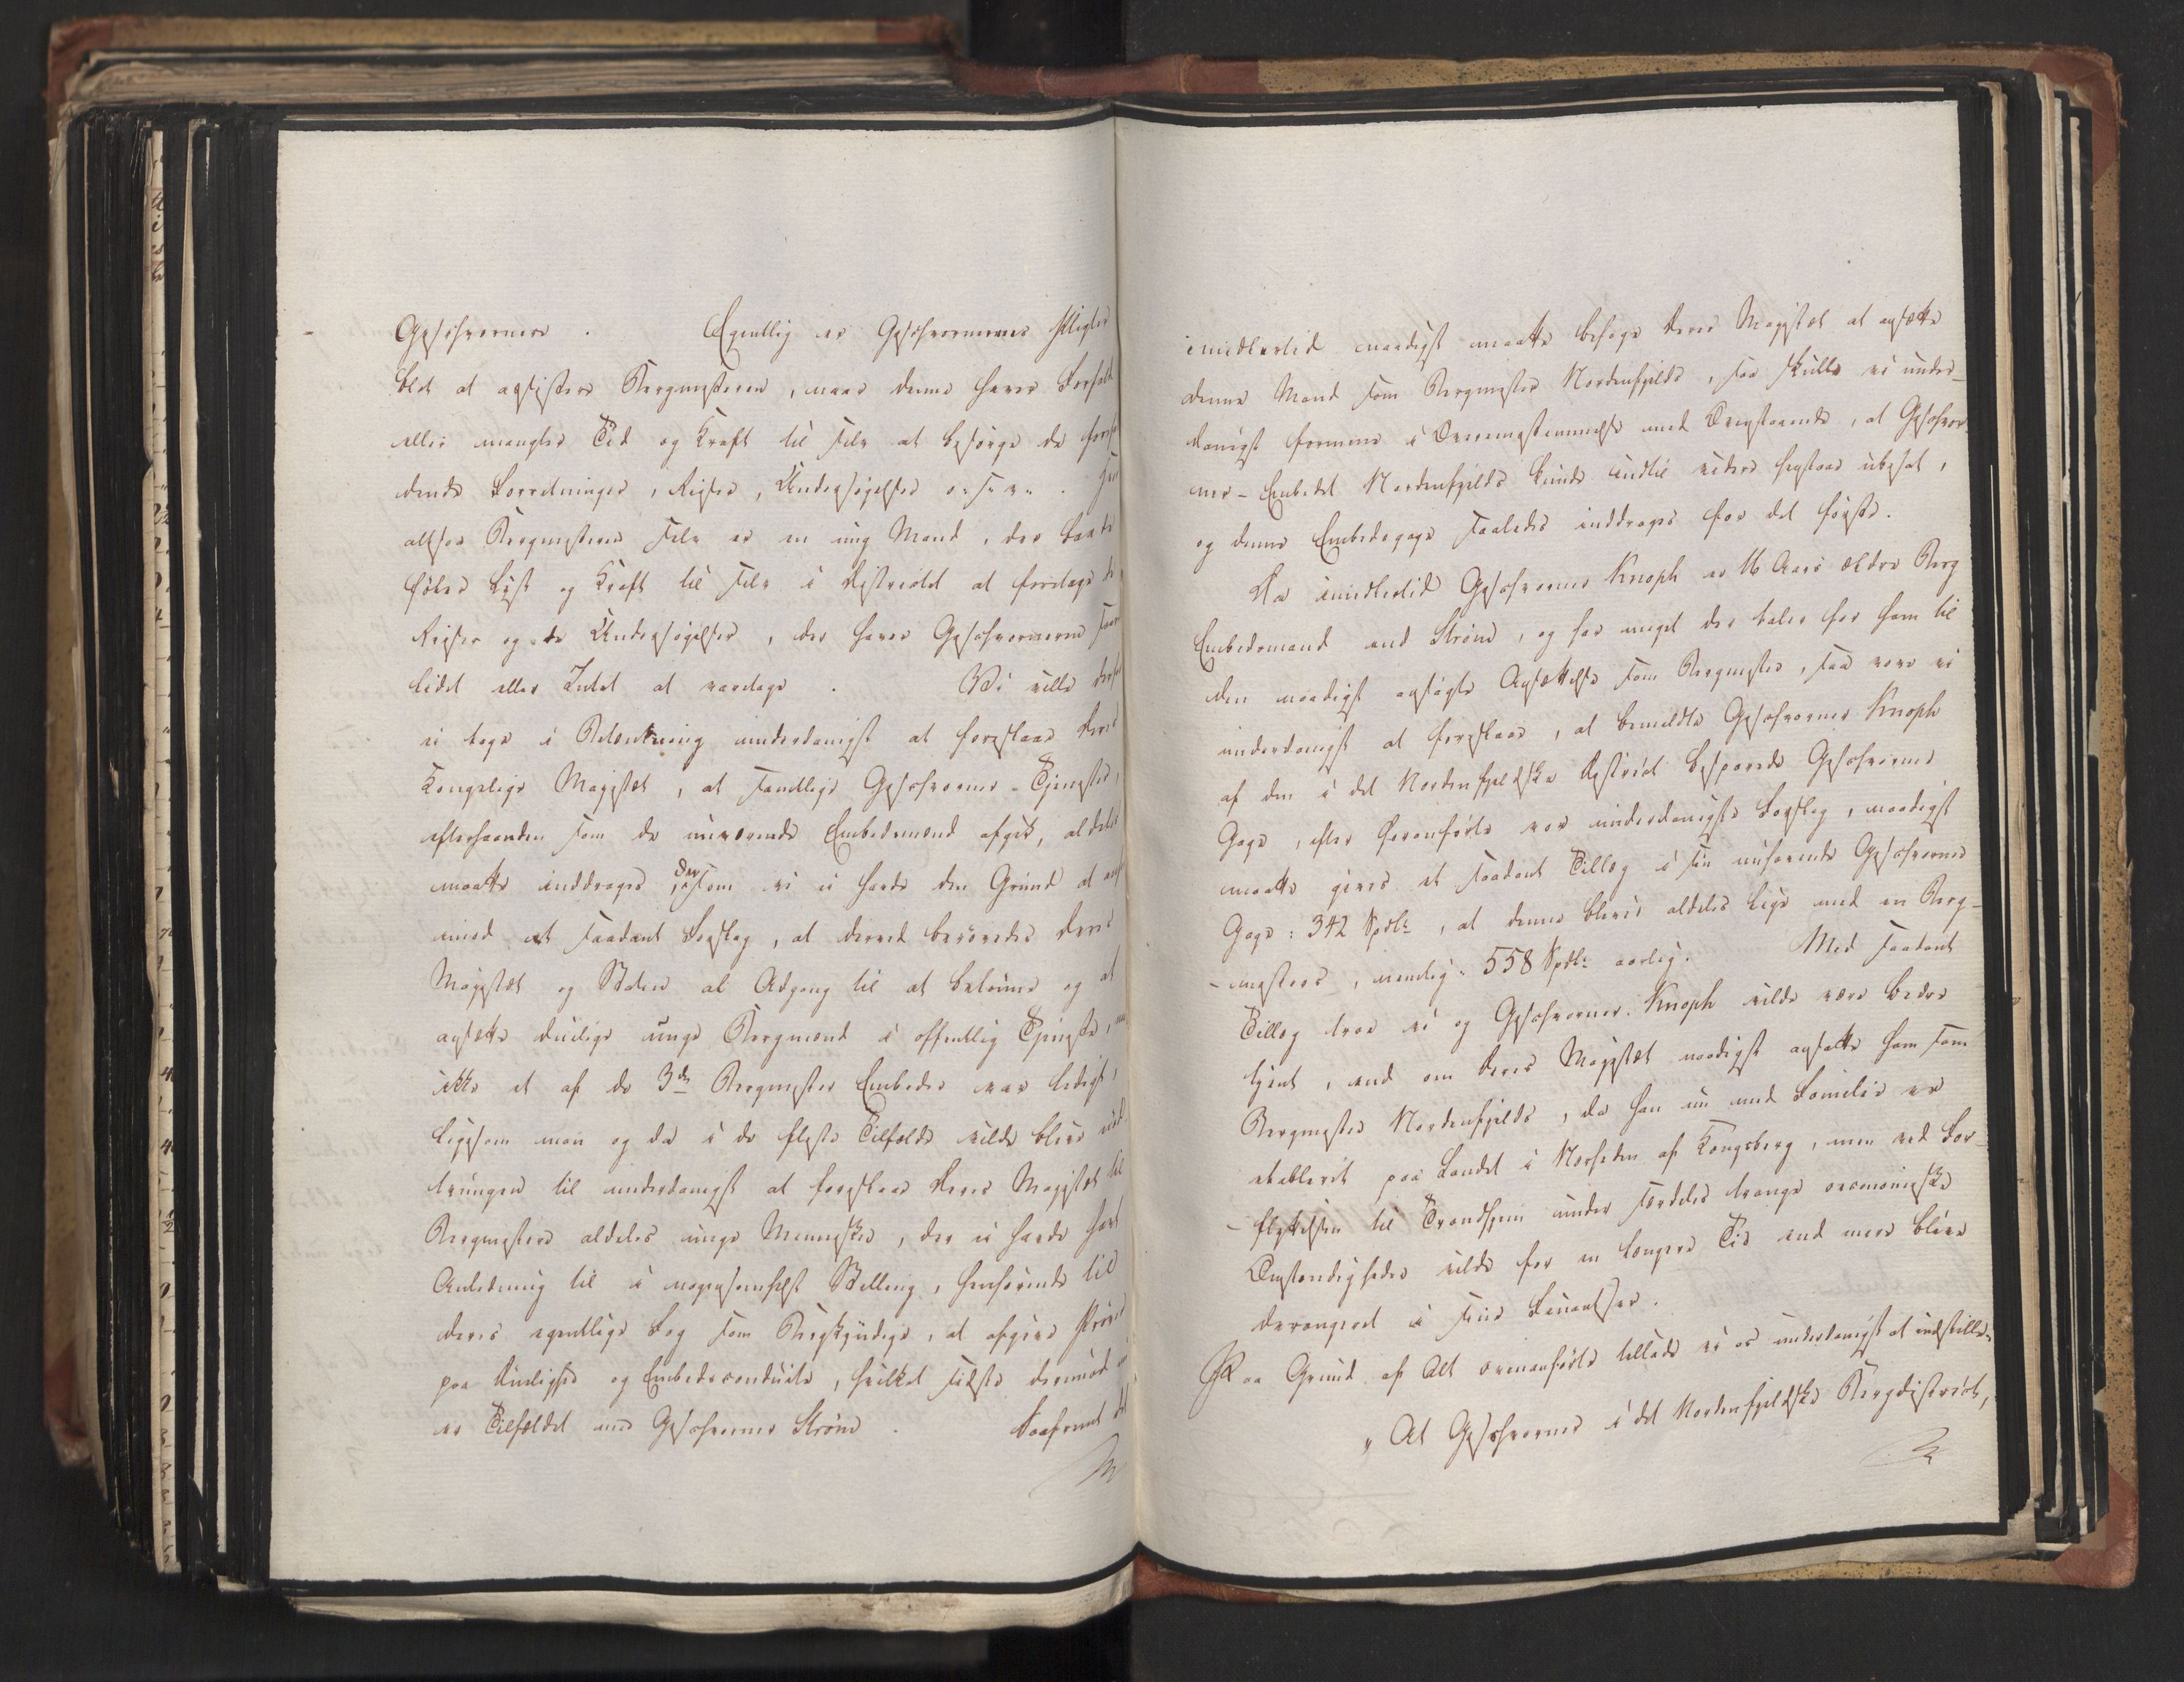 Geschworner. Egentlig er Geschwornernes Pligter
blot at assistere Bergmesteren, naar denne haver Forfald
eller mangler Tid og Kraft til selv at besørge de
dende Forretninger, Reiser, Undersøgelser o. s. v.
altsaa Bergmesteren selv er en ung Mand, der baade
føler Lyst og Kraft til selv i Districtet at foretage de
Reiser og de Undersøgelser, der haver Geschworneren saare
lidet eller Intet at varetage. Vi vilde derfor
ei tage i Betænkning underdanigst at foreslaae Deres
Kongelige Majestæt, at samtlige Geschworner-Tjenester,
efterhaanden som de nuværende Embedsmænd afgik, aldeles
maatte inddrages, dersom vi ei havde den Grund at
imod et saadant Forslag, at derved berøvedes Deres
Majestæt og Staten al Adgang til at belønne og at
ansætte duelige unge Bergmænd i offentlig Tjeneste, naar
ikke et af de 3de Bergmester Embeder var ledigt,
ligesom man og da i de fleste Tilfælde vilde blive nød-
tvungen til underdanigst at foreslaae Deres Majestæt til
Bergmestere aldeles unge Mennesker, der ei havde havt
Anledning til i nogensomhelst Stilling, henhørende til
deres egentlige Fag som Bergkyndige, at afgive Prøver
paa Duelighed og Embedsconduite, hvilket sidste derimod
er Tilfældet med Geschworner Strøm. Saafremt det
imidlertid naadigst maatte behage Deres Majestæt at ansætte
denne Mand som Bergmester Nordenfjelds, saa skulle vi under-
danigst formene i Overensstemmelse med Ovenstaaende, at Geschwor-
ner-Embedet Nordenfjelds kunde indtil videre henstaae ubesat,
og denne Embedsgage saaledes inddrages for det første.
Da imidlertid Geschworner Knoph er 16 Aars ældre Berg
Embedsmand end Strøm, og har meget der taler for ham til
den naadigst ansøgte Ansættelse som Bergmester, saa vove vi
underdanigst at foreslaae, at bemeldte Geschworner Knoph
af den i det Nordenfjeldske District besparede Geschworner
Gage, efter ovenførte vor underdanigste Forslag, naadigst
maatte gives et saadant Tillæg i sin nuhavende Geschworner
Gage: 342 Spdlr, at denne bliver aldeles lige med en Berg-
mesters, nemlig: 558 Spdlr aarlig. Med saadant
Tillæg troe vi og Geschworner Knoph vilde være bedre
tjent, end om Deres Majestæt naadigst ansatte ham som
Bergmester Nordenfjelds, da han nu med Familie er
etableret paa Landet i Nærheden af Kongsberg, men ved For-
flyttelsen til Trondhjem under særdeles trange oeconomiske
Omstændigheder vilde for en længere Tid end mere blive
derangeret i sine Finantser.
Paa Grund af Alt ovenanførte tillade vi os underdanigst at indstille:
"At Geschworner i det Nordenfjeldske Bergdistrict,